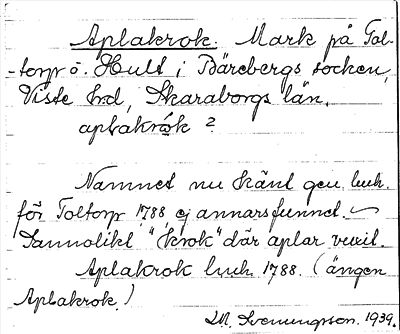 Aplakrok. Mark på Tol-
-torp o. Hult i Bärebergs socken,
Viste hrd, Skaraborgs län.
aplakrok ?
Namnet nu känt gen. luch.
för Toltorp 1788 ej annars funnet. ~
Sannolikt "krok" där aplar vuxit.
Aplakrok luch. 1788. (ängen
Aplakrok.)
LM. Svenungsson. 1939.